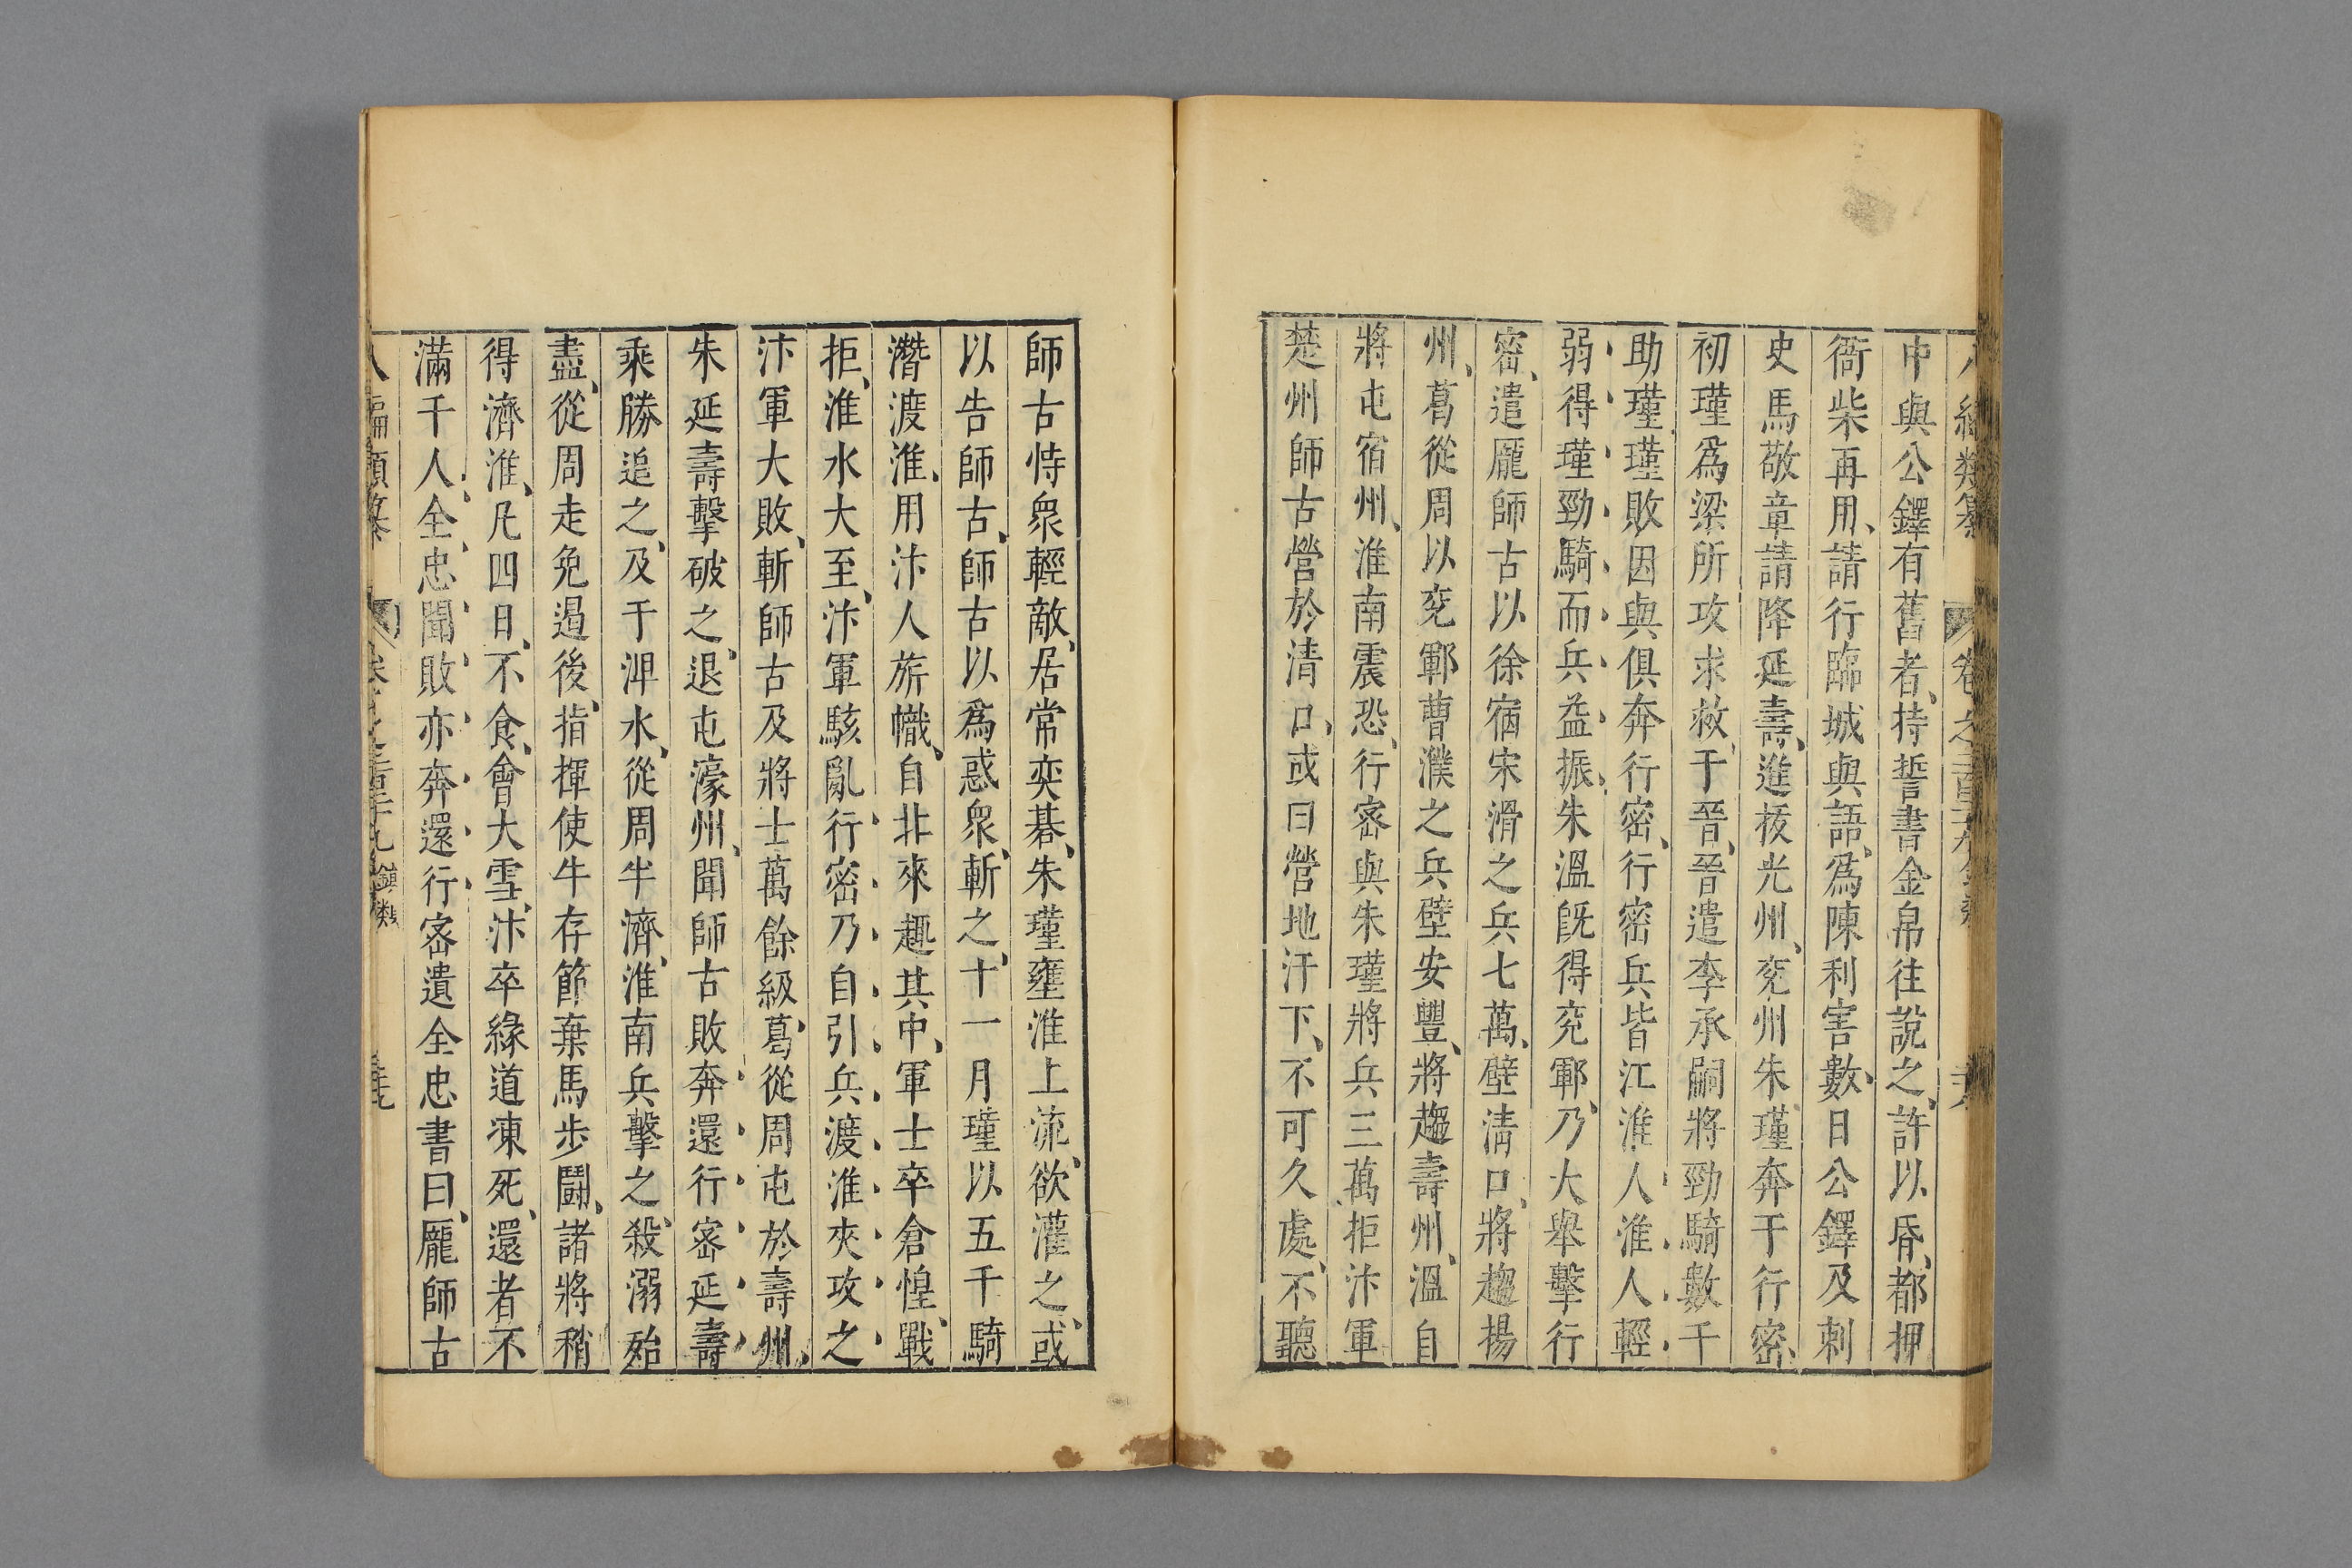 中與公鐸有舊者、持誓書金帛往說之、許以昏、都押
衙柴再用、請行臨城與語、爲陳利害數日公鐸及刺
史馬敬章請降延壽、進拔光州、兖州朱瑾奔于行密、
初瑾爲梁所攻求救、于晉、晉遣李承嗣將勁騎數千
助瑾瑾敗因與俱奔行密、行密兵皆江淮人淮人輕
弱得瑾勁騎而兵益振、朱溫旣得兖鄆、乃大舉擊行
密、遣龐師古以徐宿宋滑之兵七萬、壁淸口、將趨揚
州、葛從周以兖鄆曹濮之兵壁安豐、將趨壽州、溫自
將屯宿州、淮南震恐、行密與朱瑾將兵三萬拒汴軍
楚州師古營於清口、或曰營地汙下、不可久處、不聽
師古恃眾輕敵、居常奕碁、朱瑾壅淮上流、欲灌之、或
以告師古、師古以爲惑眾、斬之、十一月瑾以五千騎
潛渡淮、用汴人旂幟、自北來趣其中、軍士卒倉惶、戰
拒、淮水大至、汴軍駭亂行密乃自引兵渡淮夾攻之
汴軍大敗、斬師古及將士萬餘級、葛從周屯於壽州、
朱延壽擊破之、退屯濠州、聞師古敗奔還行密延壽
乘勝追之、及于淠水、從周半濟、淮南兵擊之、殺溺殆
盡、從周走免遏後、指揮使牛存節棄馬步鬪、諸將稍
得濟淮、凡四日、不食、會大雪、汴卒緣道凍死、還者不
滿千人、全忠聞敗亦奔還行密遺全忠書曰、龐師古